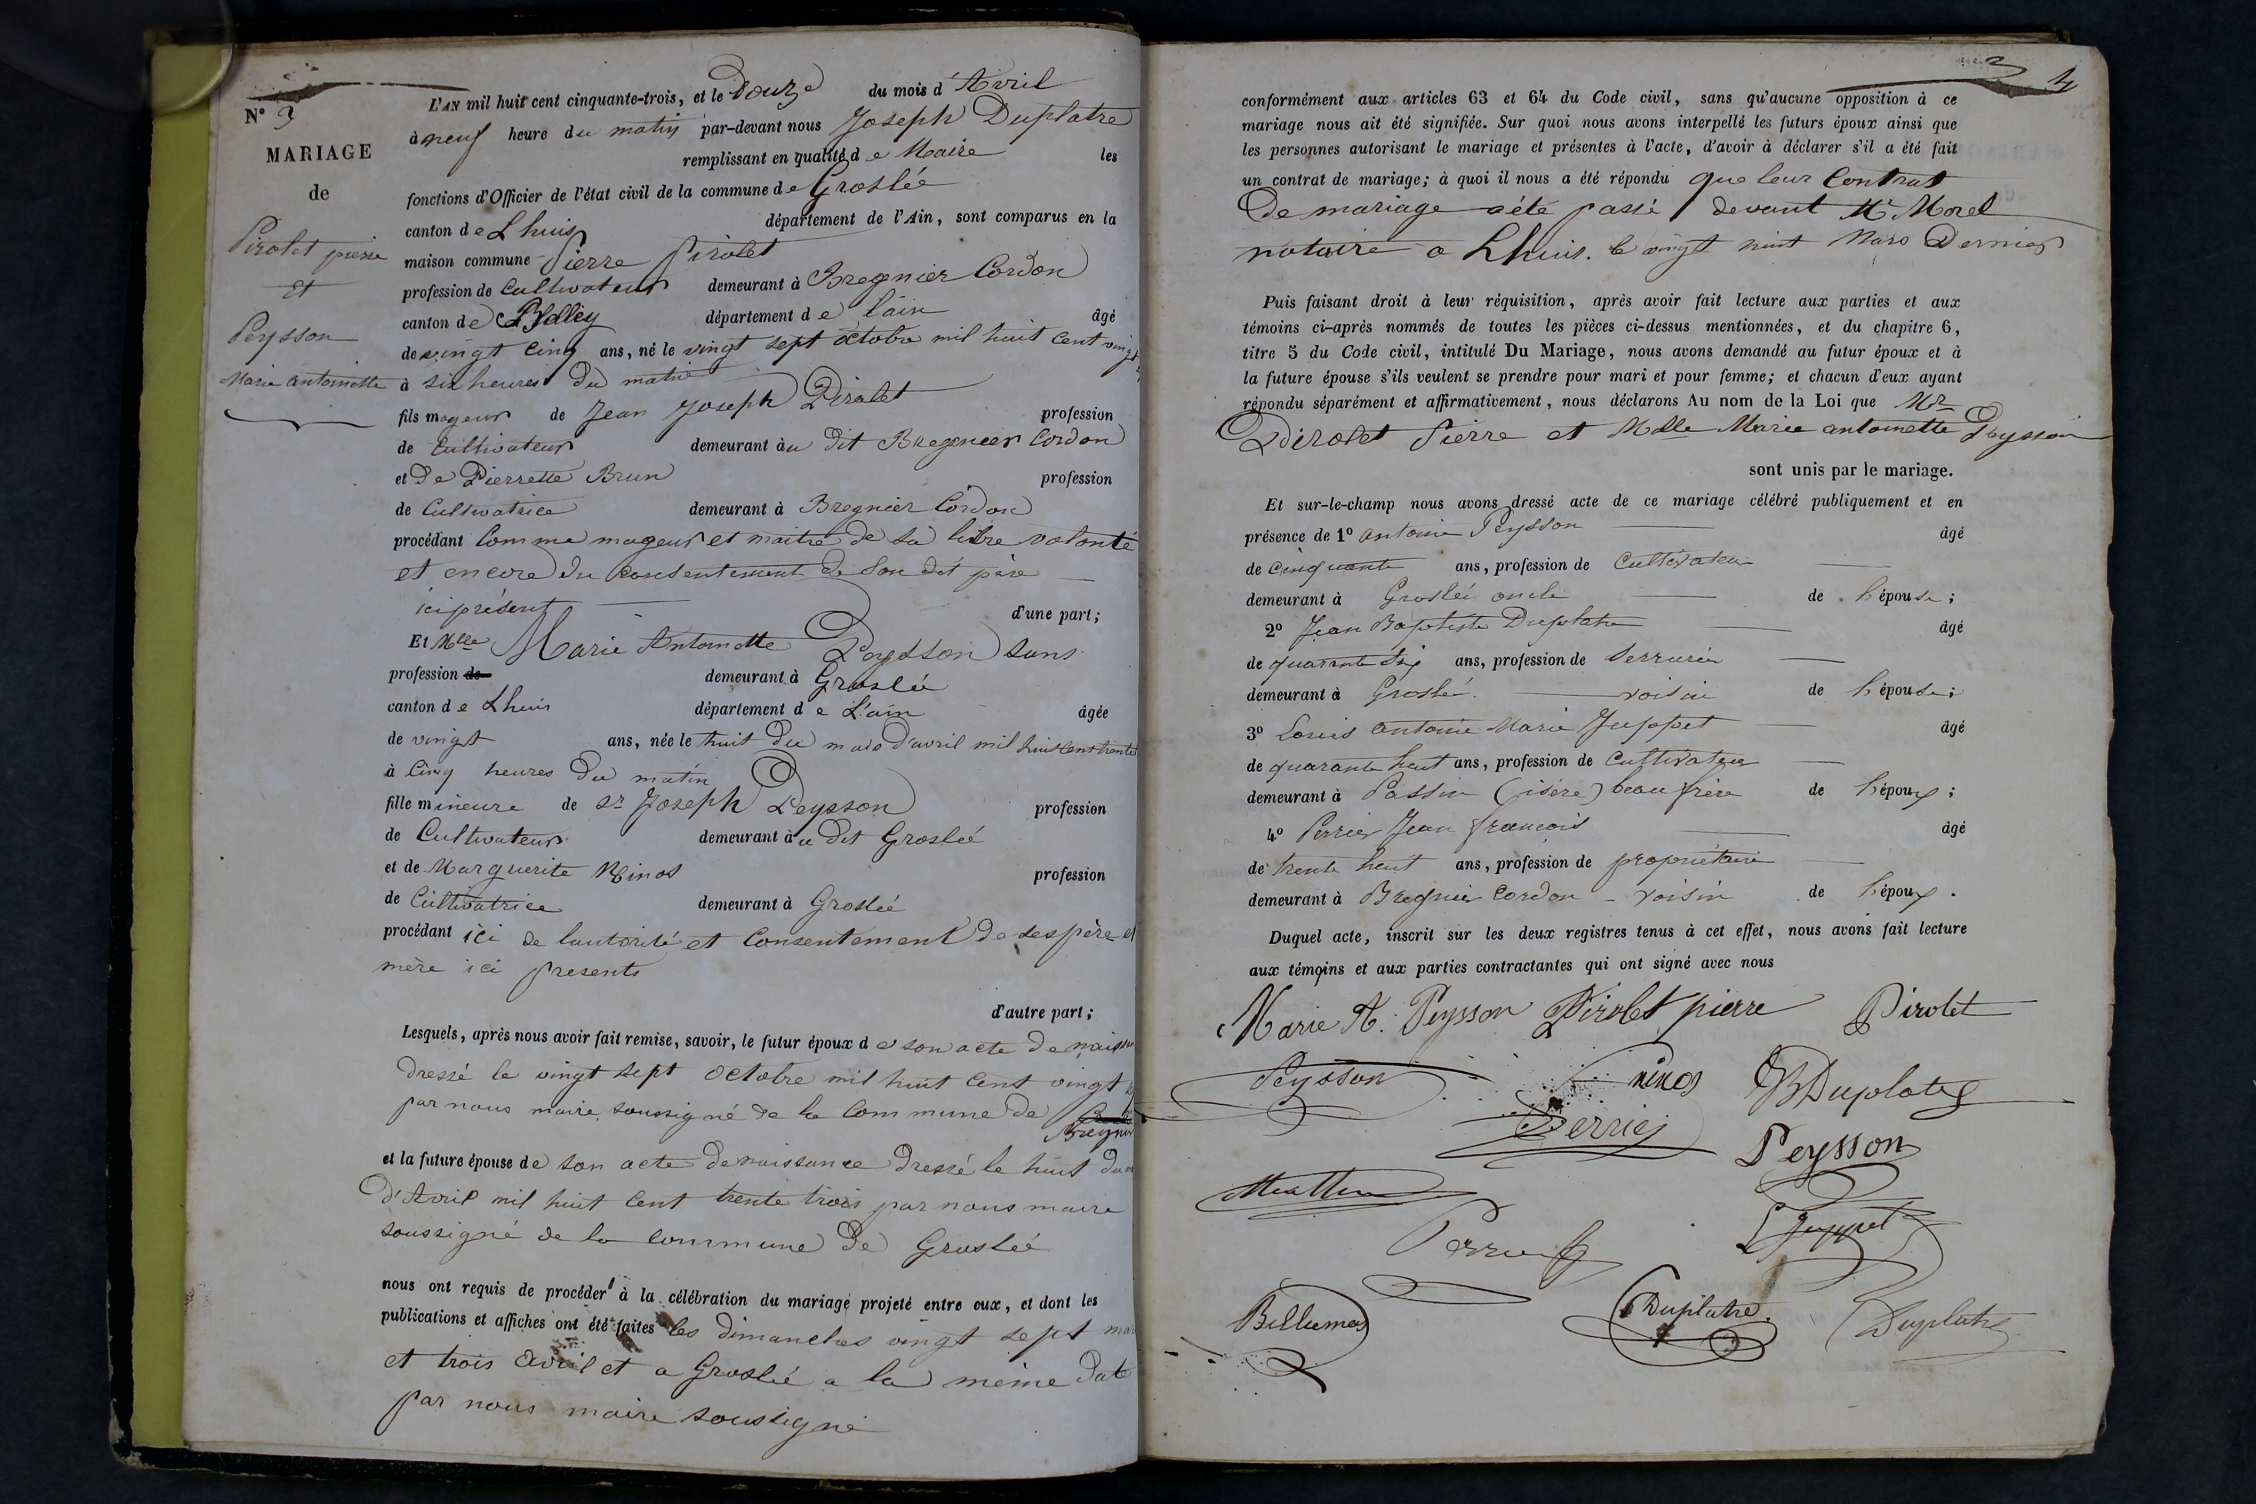 N° 3
MARIAGE
de
Pirolet pierre
et
Peysson
Marie antoinette
L'AN mil huit cent cinquante-trois, et le Douze du mois d'Avril
à neuf heure du matin par-devant nous Joseph Duplatre
remplissant en qualité de Maire les
fonctions d'Officier de l'état civil de la commune de Groslée
canton de Lhuis département de l'Ain, sont comparus en la
maison commune Pierre Pirolet
profession de Cultivateur demeurant à Bregnier Cordon
canton de Belley département de lain âgé
de vingt cinq ans, né le vingt sept octobre mil huit cent vingt
à six heures du matin
fils mageur de Jean Joseph Pirolet profession
de Cultivateur demeurant au dit Bregnier Cordon
et de Pierrette Brun profession
de Cultivatrice demeurant à Bregnier Cordon
procédant comme mageur et maitre de sa libre volonté
et encore du consentement de son dit père
ici présent d'une part;
Et Mlle Marie Antoinette Peysson sans
profession de demeurant à Groslée
canton de Lhuis département de L'ain âgée
de vingt ans, née le huit du mois d'avril mil huit cent trente
à Cinq heures du matin
fille mineure de Sr Joseph Peysson profession
de Cultivateur demeurant au dit Groslée
et de Marguerite Ninos profession
de Cultivatrice demeurant à Groslée
procédant ici de lautorité et Consentement de ses père et
mère ici presents
d'autre part;
Lesquels, après nous avoir fait remise, savoir, le futur époux de son acte de
dressé le vingt sept octobre mil huit cent vingt
par nous maire soussigné de la commune de
et la future épouse de son acte de naissance dressé le huit du
d'Avril mil huit cent trente trois par nous maire
soussigné de la commune de Groslée
nous ont requis de procéder à la célébration du mariage projeté entre eux, et dont les
publications et affiches ont été faites les dimanches vingt sept
et trois avril et a Groslée a la même date
par nous maire soussigné
4
conformément aux articles 63 et 64 du Code civil, sans qu'aucune opposition à ce
mariage nous ait été signifiée. Sur quoi nous avons interpellé les futurs époux ainsi que
les personnes autorisant le mariage et présentes à l'acte, d'avoir à déclarer s'il a été fait
un contrat de mariage; à quoi il nous a été répondu que leur Contrat
de mariage a été passé devant Me Morel
notaire a Lhuis. le vingt huit Mars Dernier
Puis faisant droit à leur réquisition, après avoir fait lecture aux parties et aux
témoins ci-après nommés de toutes les pièces ci-dessus mentionnées, et du chapitre 6,
titre 5 du Code civil, intitulé Du Mariage, nous avons demandé au futur époux et à
la future épouse s'ils veulent se prendre pour mari et pour femme; et chacun d'eux ayant
répondu séparément et affirmativement, nous déclarons Au nom de la Loi que Mr
Pirolet Pierre et Mdlle Marie antoinette Peysson
sont unis par le mariage.
Et sur-le-champ nous avons dressé acte de ce mariage célébré publiquement et en
présence de 1° antoine Peysson âgé
de cinquante ans, profession de Cultivateur
demeurant à Groslée oncle de l'épouse;
2° Jean Baptiste Duplatre âgé
de quarante six ans, profession de Serrurier
demeurant à Groslée. voisin de l'épouse;
3° Louis antoine Marie Juppet âgé
de quarante huit ans, profession de Cultivateur
demeurant à Passin (isère) beau frère de l'époux;
4° Perrier Jean francois âgé
de trente huit ans, profession de propriétaire
demeurant à Bregnier Cordon - voisin de l'époux.
Duquel acte, inscrit sur les deux registres tenus à cet effet, nous avons fait lecture
aux témoins et aux parties contractantes qui ont signé avec nous
Marie A. Peysson Pirolet pierre Pirolet
Peysson ninos JB Duplatre
Perrier Peysson
Juppet
Billiemaz Duplatre Duplatre